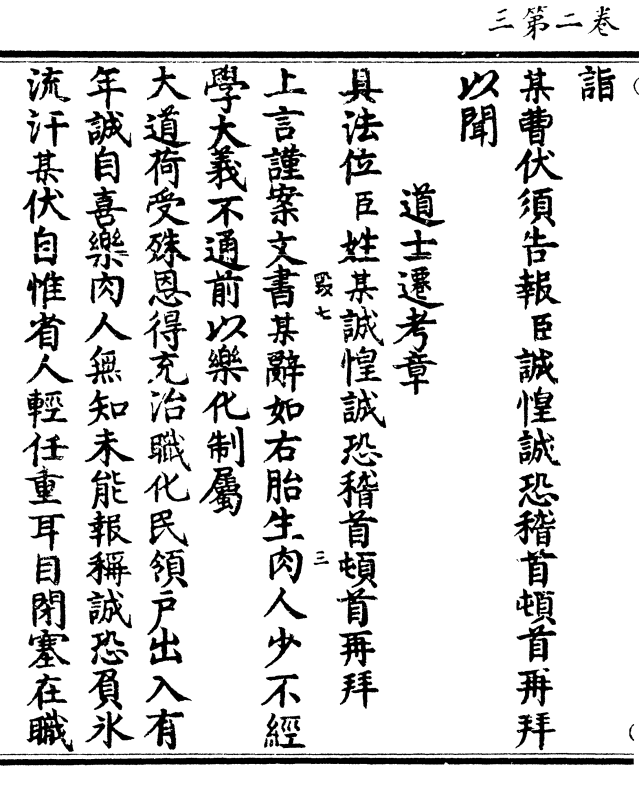 三第二卷
詣
某曹伏須告報臣誠惶誠恐稽首頓首再拜
以聞
道士遷考章
具法位臣姓某誠惶誠恐稽首頓首再拜
毀七
三
上言謹案文書某辭如右胎生肉人少不經
學大義不通前以樂化制屬
大道荷受殊恩得充治職化民領戶出入有
年誠自喜樂肉人無知未能報稱誠恐負氷
流汗某伏自惟省人輕任重耳目閉塞在職